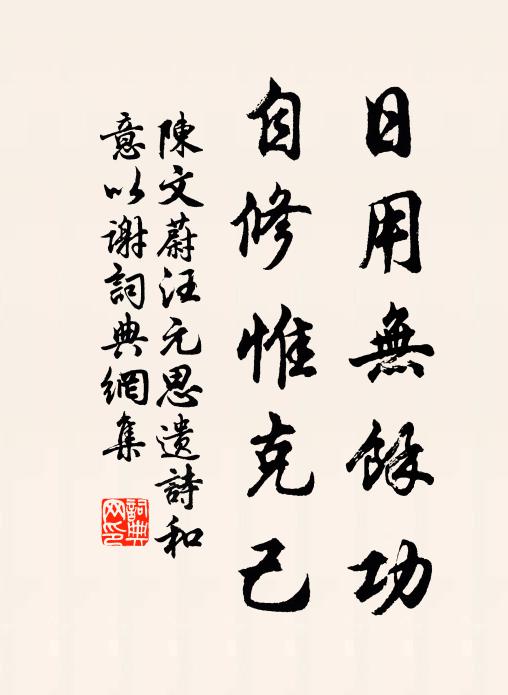 日用無餘功
自修惟克己
陳文蔚汪元思遺詩和
意以謝詞典網集
詞典
网印